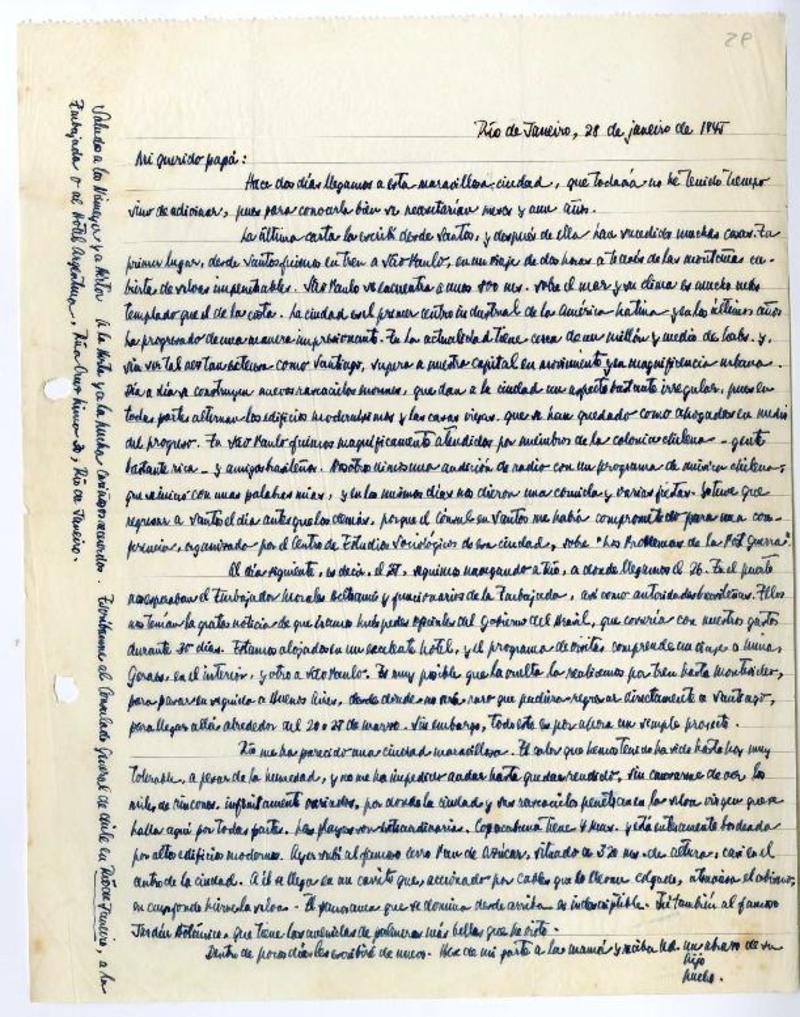 28
Río de Janeiro, 28 de janeiro de 1945
Mi querido papá:
Hace dos días llegamos a esta maravillosa ciudad, que todavía no he tenido tiempo
sino de adivinar, pues para conocerla bien se necesitarían meses y aun años.
La última carta la escribí desde Santos, y después de ella han sucedido muchas cosas. En
primer lugar, desde Santos fuimos en tren a São Paulo, en un viaje de dos horas a través de las montañas cu-
biertas de selvas impenetrables. São Paulo se encuentra a unos 800 ms. sobre el mar y su clima es mucho más
templado que el de la costa. La ciudad es el primer centro industrial de la América Latina y en los últimos años
ha progresado de una manera impresionante. En la actualidad tiene cerca de un millón y medio de habs. y,
sin ser tal vez tan extensa como Santiago, supera a nuestra capital en movimiento y en magnificencia urbana.
Día a día se construyen nuevos rascacielos enormes, que dan a la ciudad un aspecto bastante irregular, pues en
todas partes alternan los edificios modernísimos y las casas viejas que se han quedado como ahogadas en medio
del progreso. En São Paulo fuimos magníficamente atendidos por miembros de la colonia chilena - gente
bastante rica - y amigos brasileños. Nosotros dimos una audición de radio con un programa de música chilena,
que inicié con unas palabras mías, y en los mismos días nos dieron una comida y varias fiestas. Yo tuve que
regresar a Santos el día antes que los demás, porque el Cónsul en Santos me había comprometido para una con-
ferencia, organizada por el Centro de Estudios Sociológicos de esa ciudad, sobre "Los Problemas de la Post Guerra".
Al día siguiente, es decir, el 25, seguimos navegando a Río, a donde llegamos el 26. En el puerto
nos esperaban el Embajador Morales Beltramí y funcionarios de la Embajada, así como autoridades brasileñas. Ellos
nos tenían la grata noticia de que éramos huéspedes oficiales del Gobierno del Brasil, que correría con nuestros gastos
durante 30 días. Estamos alojados en un excelente hotel, y el programa de visitas comprende un viaje a Minas
Geraes, en el interior, y otro a São Paulo. Es muy posible que la vuelta la realicemos por tren hasta Montevideo,
para pasar en seguida a Buenos Aires, desde donde no sería raro que pudiera regresar directamente a Santiago,
para llegar allá alrededor del 20 o 25 de marzo. Sin embargo, todo esto es por ahora un simple proyecto.
Río me ha parecido una ciudad maravillosa. El calor que hemos tenido ha sido hasta hoy muy
tolerable, a pesar de la humedad, y no me ha impedido andar hasta quedar rendido, sin cansarme de ver los
miles de rincones, infinitamente variados, por donde la ciudad y sus rascacielos penetran en la selva virgen que se
halla aquí por todas partes. Las playas son extraordinarias. Copacabana tiene 4 kms. y está enteramente bordeada
por altos edificios modernos. Ayer subí al famoso cerro Pan de Azúcar, situado a 320 ms. de altura, casi en el
centro de la ciudad. A él se llega en un carrito que, accionado por cables que lo llevan colgado, atraviesa el abismo,
en cuyo fondo hierve la selva. El panorama que se domina desde arriba es indescriptible. Fui también al famoso
Jardín Botánico, que tiene las avenidas de palmeras más bellas que he visto.
Dentro de pocos días les escribiré de nuevo. Bese de mi parte a la mamá y reciba Ud. un abrazo de su
hijo
Saludos a los Niemeyer y a Héctor. A la Herta y a la Lucha cariñosos recuerdos. Escríbanme al Consulado General de Chile en Río de Janeiro, a la
Embajada o al Hotel Argentina, Rúa Cruz Lima 30, Río de Janeiro.